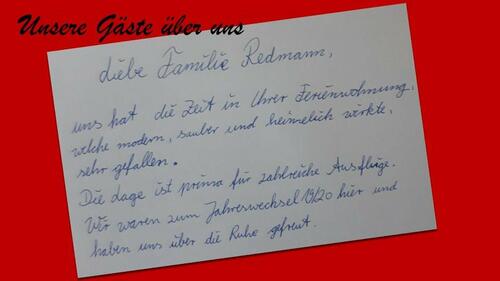 Unsere Gäste über uns
Liebe Familie Redmann,
uns hat die Zeit in Ihrer Ferienwohnung,
welche modern, sauber und heimelich wirkte,
sehr gefallen.
Die Lage ist prima für zahlreiche Ausflüge.
Wir waren zum Jahreswechsel 19/20 hier und
haben uns über die Ruhe gefreut.